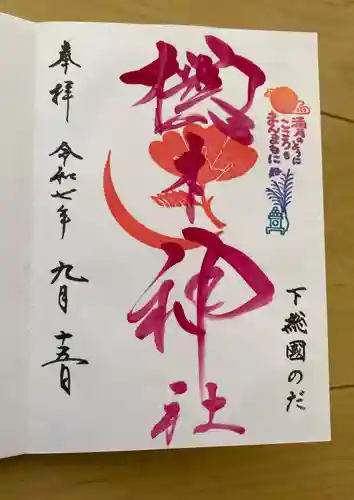 満月のように
こころも
まんまるに
櫻木神社
下総國のだ
奉拝
令和七年 九月 十五日